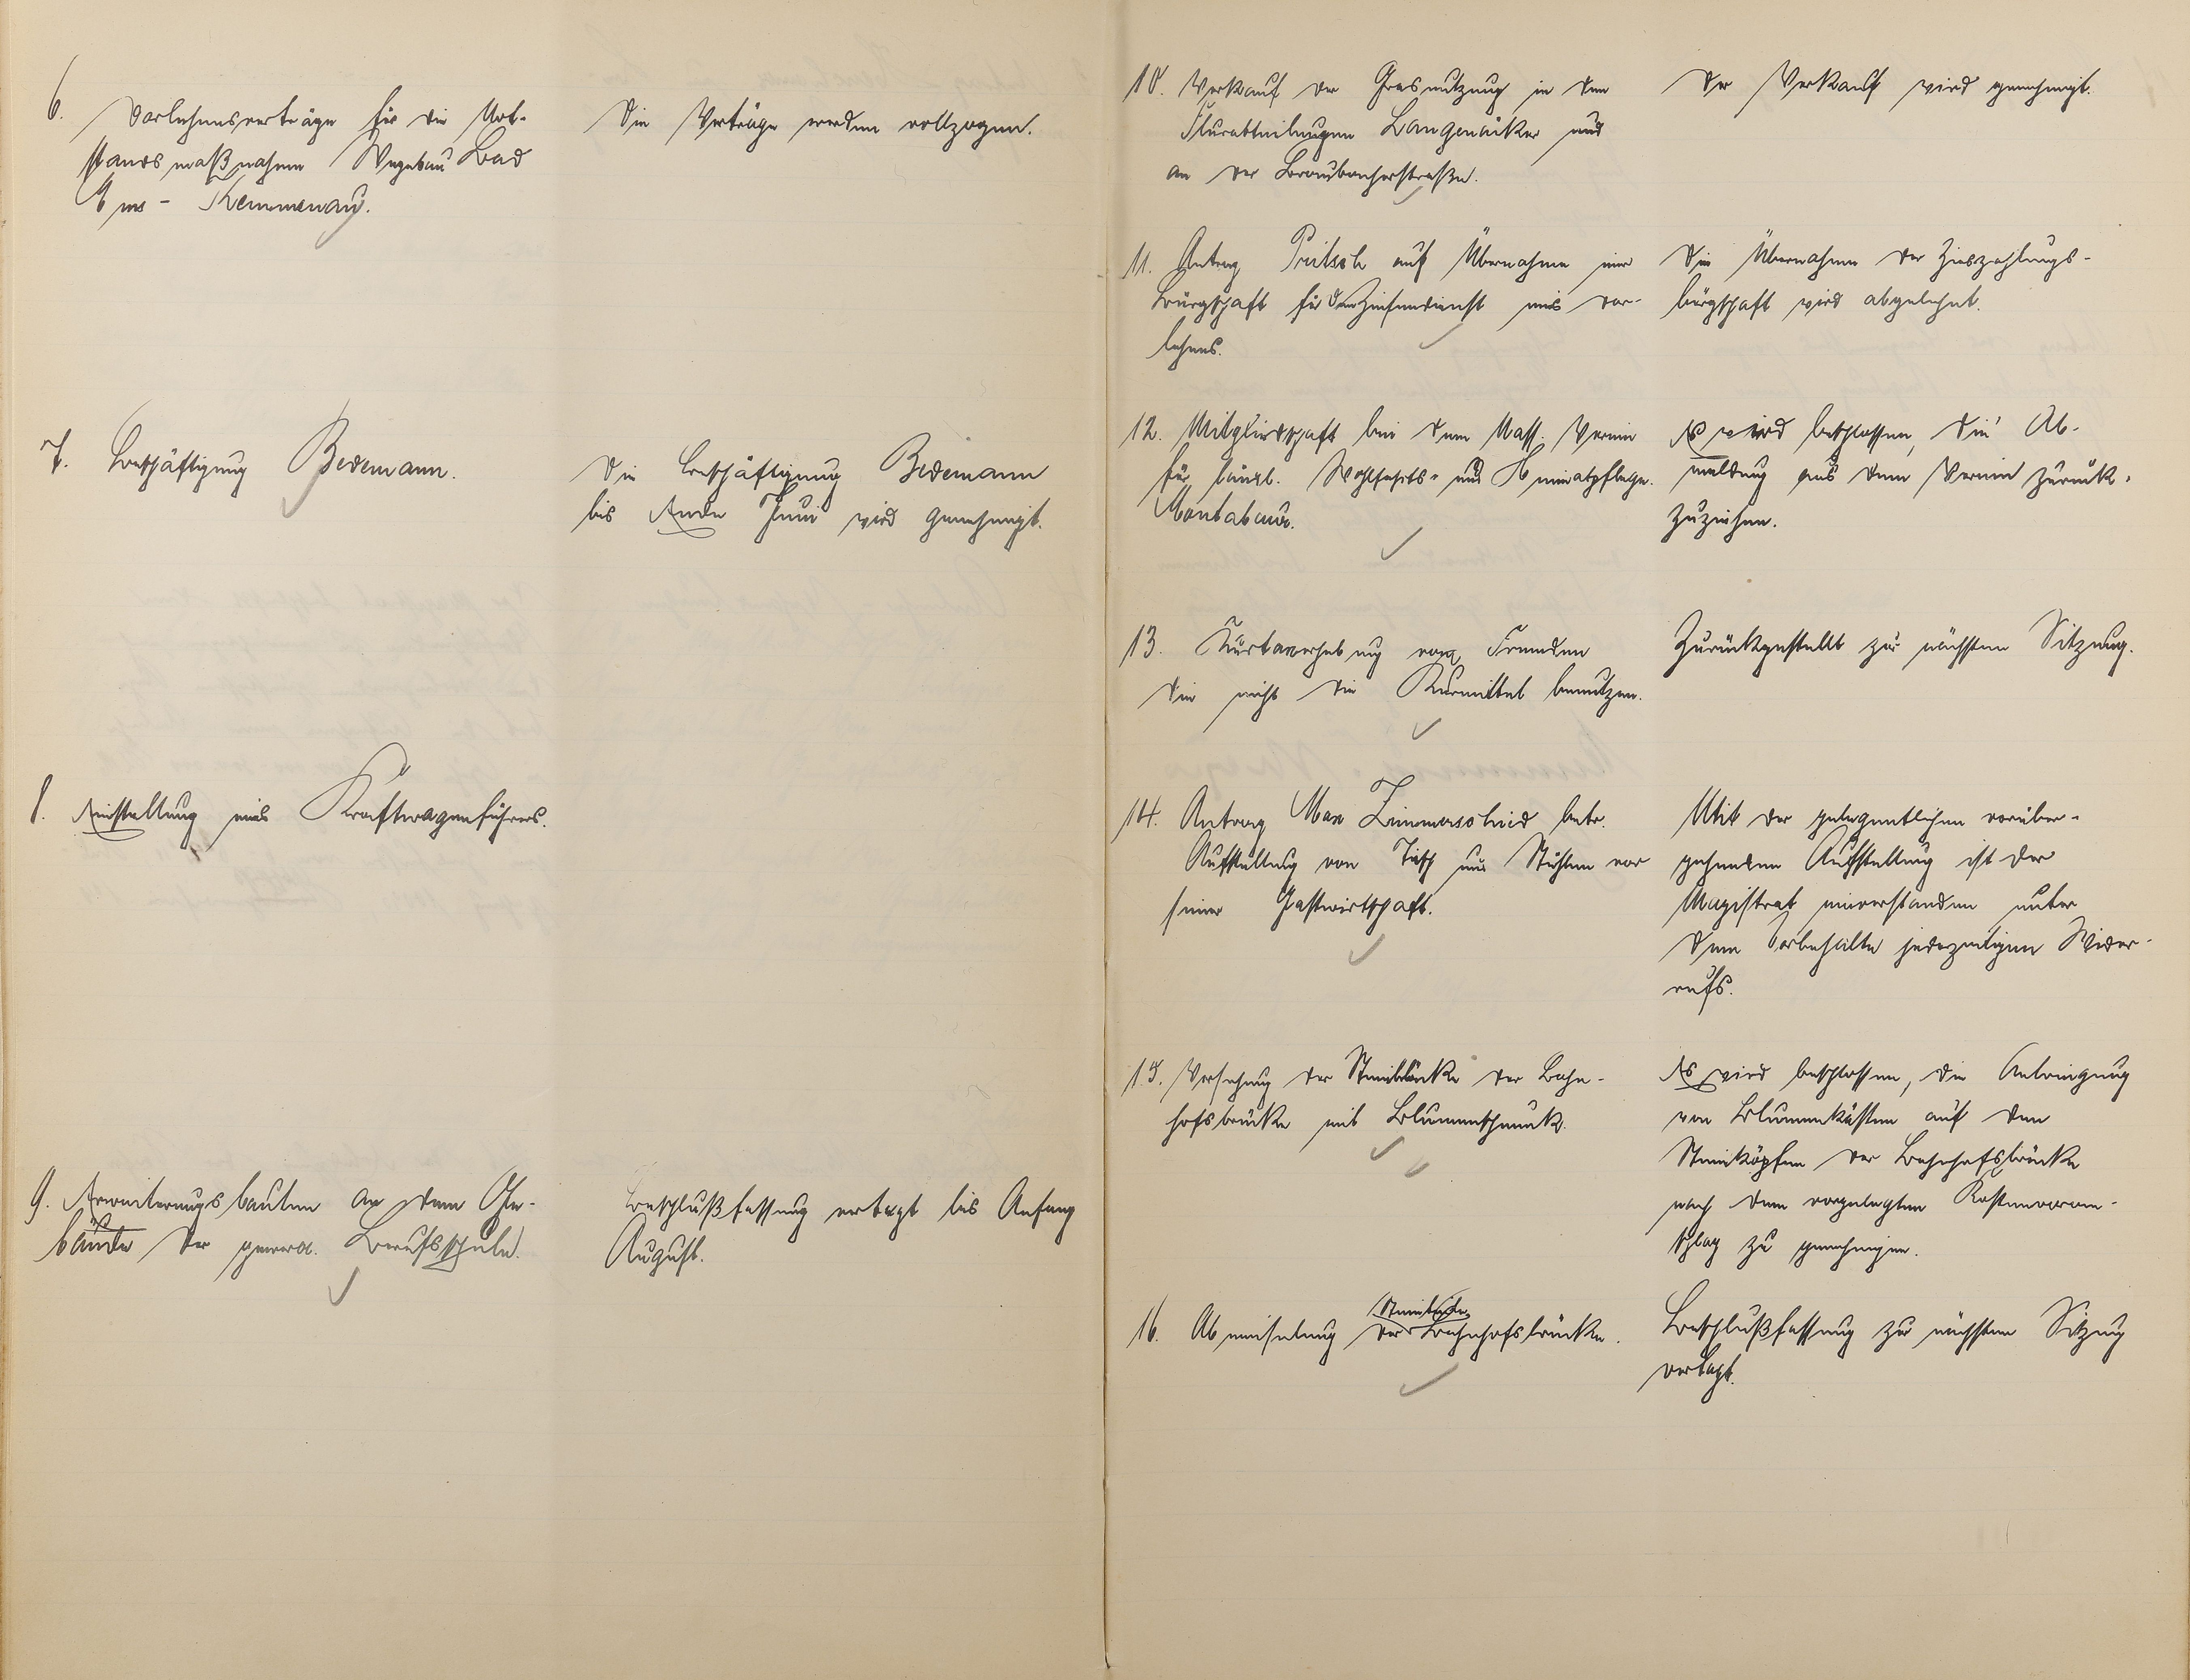 6. Darlehensverträge für die Not-
standsmaßnahmen Wegebau Bad
Ems - Kemmenau.
Die Verträge werden vollzogen.
7. Beschäftigung Bedemann.
Die Beschäftigung Bedemann
bis Ende Juni wird genehmigt.
8. Einstellung eines Kraftwagenführers.
9. Erweiterungsbauten an dem Ge-
bäude der gewerbl. Berufsschule.
Beschlußfassung vertagt bis Anfang
August.
10. Verkauf der Grasnutzung in den
Flurabteilungen Langenäcker und
an der Braubacherstraße.
Der Verkauf wird genehmigt.
11. Antrag Pritsch auf Übernahme einer
Bürgschaft für den Zinsendienst eines Dar-
lehens.
Die Übernahme der Zinszahlungs-
bürgschaft wird abgelehnt.
12. Mitgliedschaft bei dem Nass. Verein
für ländl. Wohlfahrts- und Heimatpflege.
Montabaur.
Es wird beschlossen, die Ab-
meldung aus dem Verein zurück-
zuziehen.
13. Kurtaxerhebung von Fremden
die nicht die Kurmittel benutzen.
Zurückgestellt zur nächsten Sitzung.
14. Antrag Max Zimmerschied betr.
Aufstellung von Tisch und Stühlen vor
seiner Gastwirtschaft.
Mit der gelegentlichen vorüber-
gehenden Aufstellung ist der
Magistrat einverstanden unter
dem Vorbehalte jederzeitigen Wider-
rufs.
15. Versehung der Steinblöcke der Bahn-
hofsbrücke mit Blumenschmuck.
Es wird beschlossen, die Anbringung
von Blumenkästen auf den
Steinköpfen der Bahnhofsbrücke
nach dem vorgelegten Kostenvoran-
schlag zu genehmigen.
16. Abmeißelung der Bahnhofsbrücke.
Beschlußfassung zur nächsten Sitzung
vertagt.